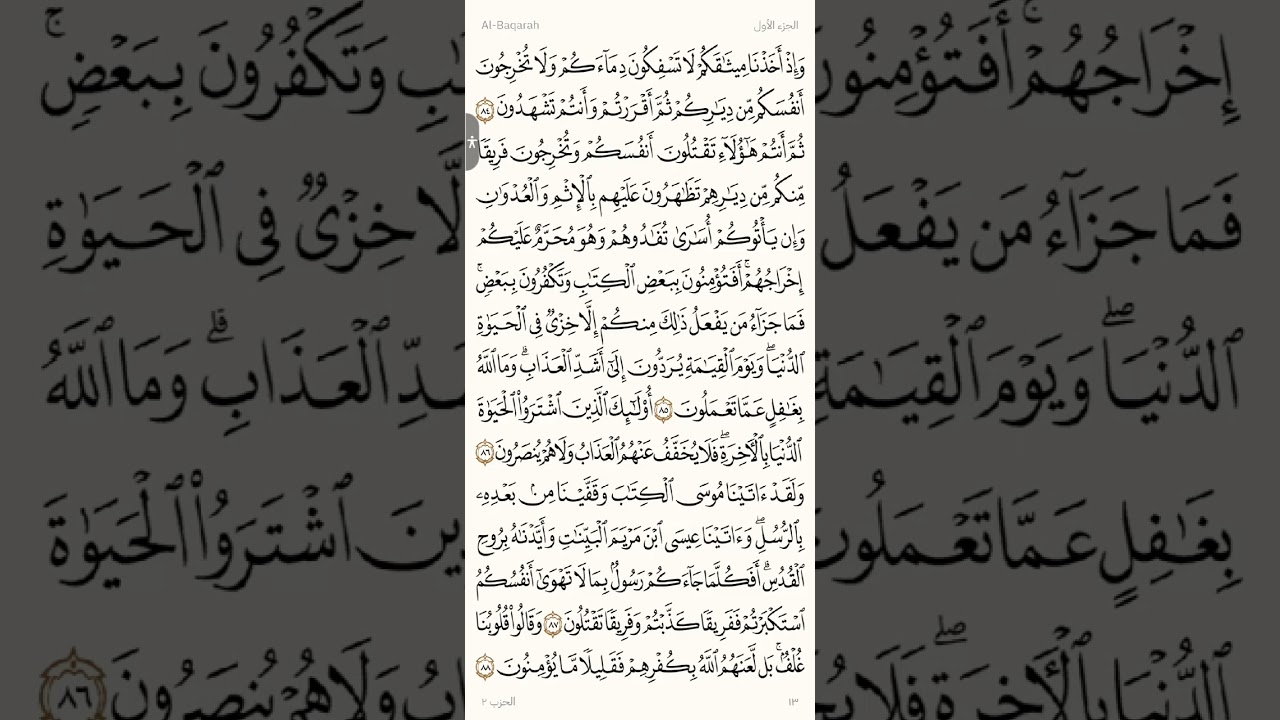 Al-Baqarah الجزء الأول
وَإِذْ أَخَذْنَا مِيثَٰقَكُمْ لَا تَسْفِكُونَ دِمَآءَكُمْ وَلَا تُخْرِجُونَ
أَنفُسَكُم مِّن دِيَٰرِكُمْ ثُمَّ أَقْرَرْتُمْ وَأَنتُمْ تَشْهَدُونَ ٨٤
ثُمَّ أَنتُمْ هَٰٓؤُلَآءِ تَقْتُلُونَ أَنفُسَكُمْ وَتُخْرِجُونَ فَرِيقًا
مِّنكُم مِّن دِيَٰرِهِمْ تَظَٰهَرُونَ عَلَيْهِم بِٱلْإِثْمِ وَٱلْعُدْوَٰنِ
وَإِن يَأْتُوكُمْ أُسَٰرَىٰ تُفَٰدُوهُمْ وَهُوَ مُحَرَّمٌ عَلَيْكُمْ
إِخْرَاجُهُمْ ۚ أَفَتُؤْمِنُونَ بِبَعْضِ ٱلْكِتَٰبِ وَتَكْفُرُونَ بِبَعْضٍ ۚ
فَمَا جَزَآءُ مَن يَفْعَلُ ذَٰلِكَ مِنكُمْ إِلَّا خِزْىٌ فِى ٱلْحَيَوٰةِ
ٱلدُّنْيَا ۖ وَيَوْمَ ٱلْقِيَٰمَةِ يُرَدُّونَ إِلَىٰٓ أَشَدِّ ٱلْعَذَابِ ۗ وَمَا ٱللَّهُ
بِغَٰفِلٍ عَمَّا تَعْمَلُونَ ٨٥ أُو۟لَٰٓئِكَ ٱلَّذِينَ ٱشْتَرَوُا۟ ٱلْحَيَوٰةَ
ٱلدُّنْيَا بِٱلْـَٔاخِرَةِ ۖ فَلَا يُخَفَّفُ عَنْهُمُ ٱلْعَذَابُ وَلَا هُمْ يُنصَرُونَ ٨٦
وَلَقَدْ ءَاتَيْنَا مُوسَى ٱلْكِتَٰبَ وَقَفَّيْنَا مِنۢ بَعْدِهِۦ
بِٱلرُّسُلِ ۖ وَءَاتَيْنَا عِيسَى ٱبْنَ مَرْيَمَ ٱلْبَيِّنَٰتِ وَأَيَّدْنَٰهُ بِرُوحِ
ٱلْقُدُسِ ۗ أَفَكُلَّمَا جَآءَكُمْ رَسُولٌۢ بِمَا لَا تَهْوَىٰٓ أَنفُسُكُمُ
ٱسْتَكْبَرْتُمْ فَفَرِيقًا كَذَّبْتُمْ وَفَرِيقًا تَقْتُلُونَ ٨٧ وَقَالُوا۟ قُلُوبُنَا
غُلْفٌۢ ۚ بَل لَّعَنَهُمُ ٱللَّهُ بِكُفْرِهِمْ فَقَلِيلًا مَّا يُؤْمِنُونَ ٨٨
١٣ الحزب ٢